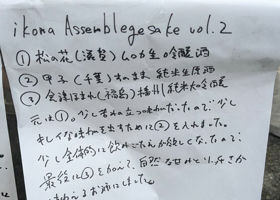 ikona Assemblege sake vol.2
① 松の花(滋賀) しのか生吟醸酒
② 甲子(千葉) 純米生原酒
③ 会津ほまれ(福島) 播州 純米大吟醸
元は①。少し 立つ味わいだったので、少し
キレイな味わいを出すために②を入れました。
少し全体的に飲みごたえが欲しくなったので
最後に③を加えて、自然な甘みと
お酒にしました。